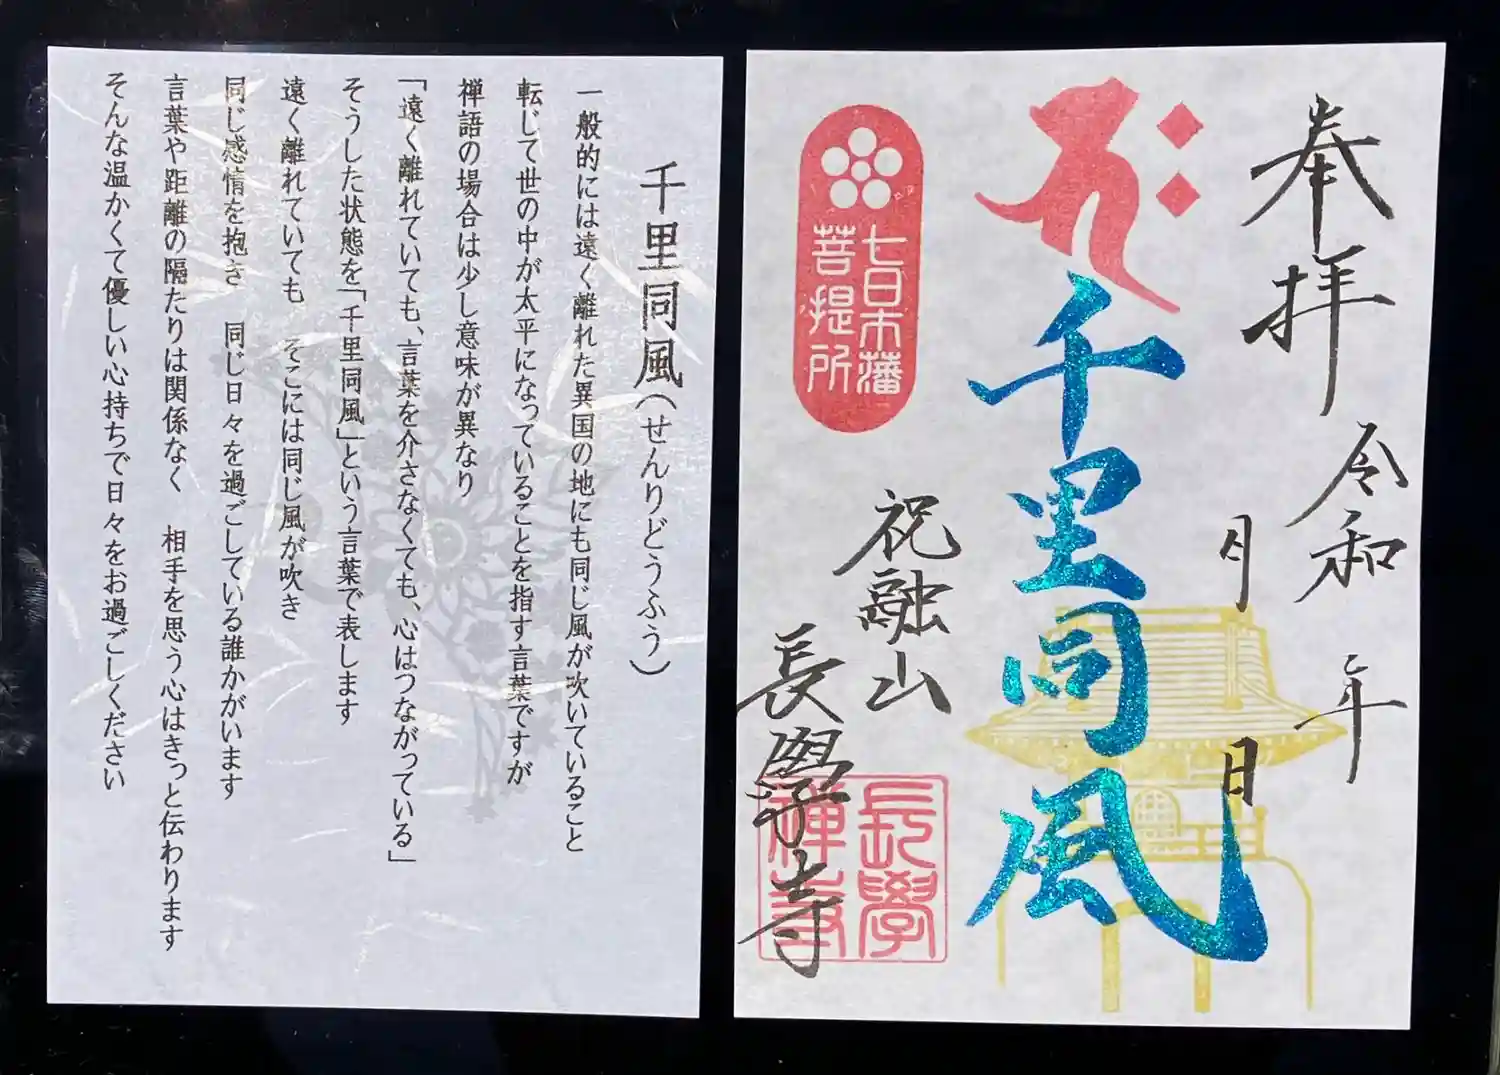 奉拝
令和　年
月　日
千里同風
七日市藩
菩提所
祝融山
長學寺
長學
禅寺
千里同風（せんりどうふう）
一般的には遠く離れた異国の地にも同じ風が吹いていること
転じて世の中が太平になっていることを指す言葉ですが
禅語の場合は少し意味が異なり
「遠く離れていても、言葉を介さなくても、心はつながっている」
そうした状態を「千里同風」という言葉で表します
遠く離れていても　そこには同じ風が吹き
同じ感情を抱き　同じ日々を過ごしている誰かがいます
言葉や距離の隔たりは関係なく　相手を思う心はきっと伝わります
そんな温かくて優しい心持ちで日々をお過ごしください